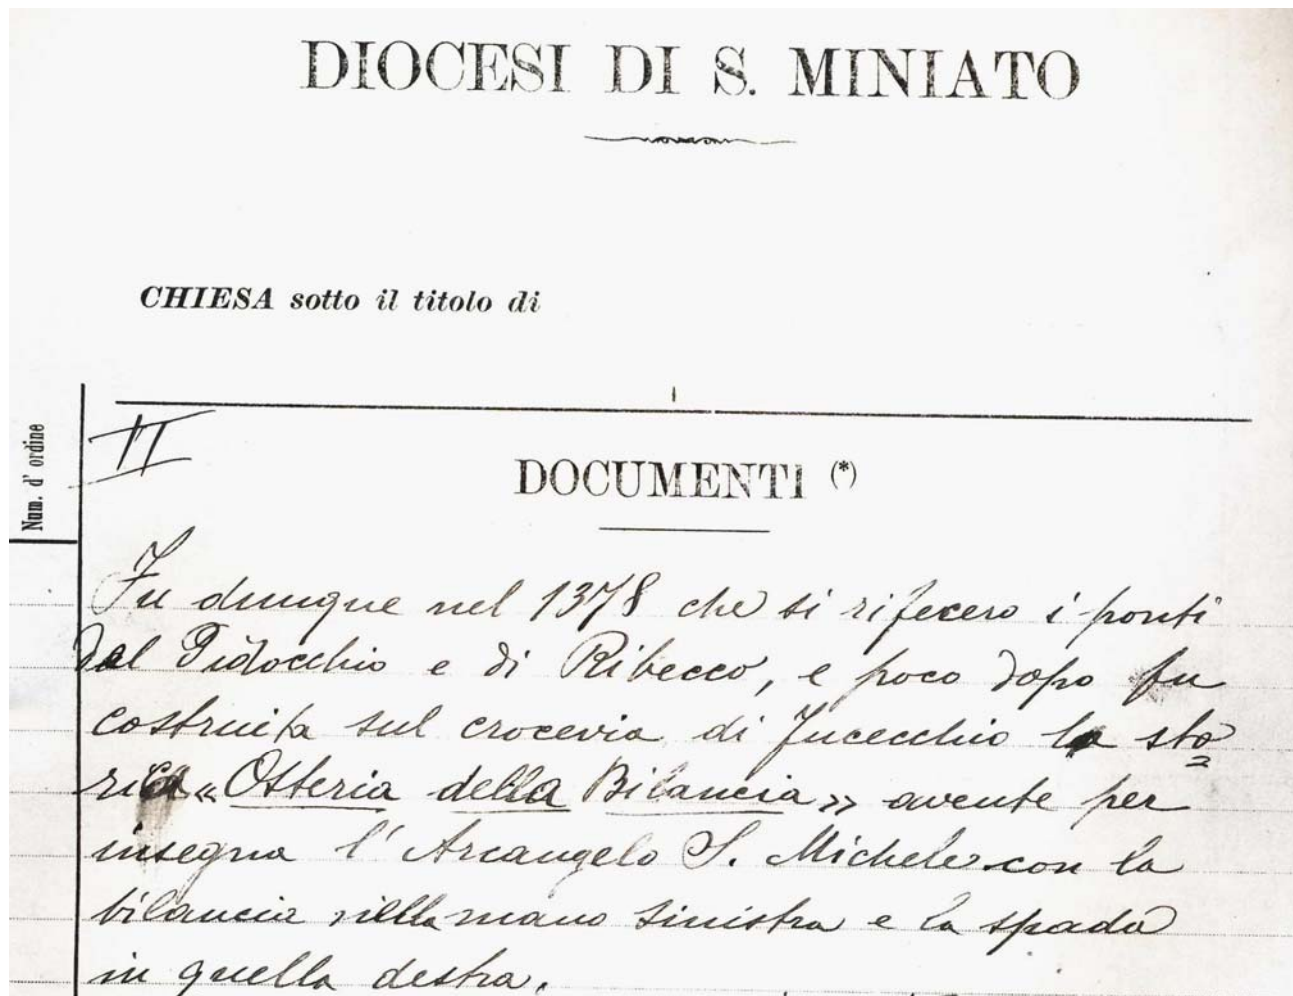 DIOCESI DI S. MINIATO
CHIESA sotto il titolo di
Num. d' ordine
II
DOCUMENTI (*)
Fu dunque nel 1378 che si rifecero i ponti
del Pidocchio e di Ribecco, e poco dopo fu
costruita sul crocevia di Fucecchio la sto=
rica «Osteria della Bilancia» avente per
insegna l'Arcangelo S. Michele con la
bilancia nella mano sinistra e la spada
in quella destra.